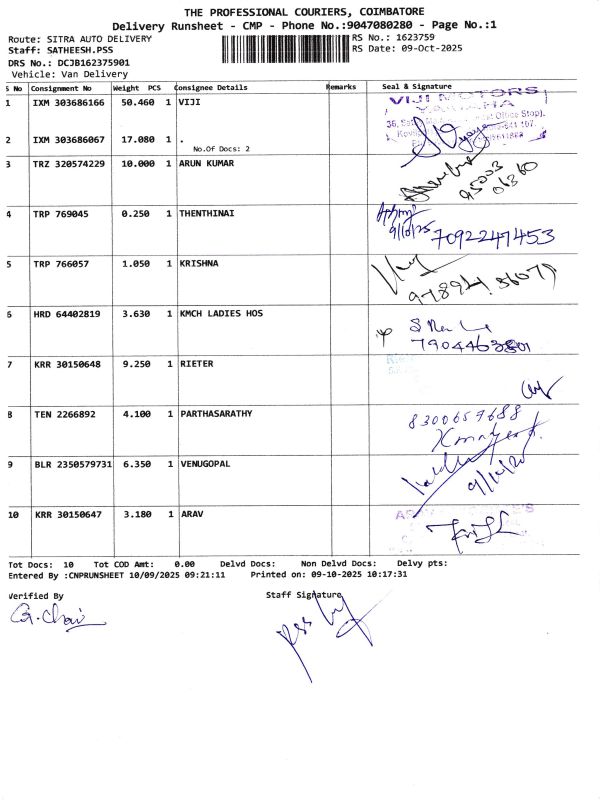 THE PROFESSIONAL COURIERS, COIMBATORE
Delivery Runsheet - CMP - Phone No.:9047080280 - Page No.:1
Route: SITRA AUTO DELIVERY
RS No.: 1623759
Staff: SATHEESH.PSS
RS Date: 09-Oct-2025
DRS No.: DCJB162375901
Vehicle: Van Delivery
S No Consignment No Weight PCS Consignee Details Remarks Seal & Signature
1 IXM 303686166 50.460 1 VIJI
VIJI MOTORS
2 IXM 303686067 17.080 1 .
No.Of Docs: 2
3 TRZ 320574229 10.000 1 ARUN KUMAR
95003
06360
4 TRP 769045 0.250 1 THENTHINAI
9/10/25 7092247453
5 TRP 766057 1.050 1 KRISHNA
6 HRD 64402819 3.630 1 KMCH LADIES HOS
7 KRR 30150648 9.250 1 RIETER
8 TEN 2266892 4.100 1 PARTHASARATHY
8300657688
9 BLR 2350579731 6.350 1 VENUGOPAL
10 KRR 30150647 3.180 1 ARAV
Tot Docs: 10 Tot COD Amt: 0.00 Delvd Docs: Non Delvd Docs: Delvy pts:
Entered By :CNPRUNSHEET 10/09/2025 09:21:11 Printed on: 09-10-2025 10:17:31
Verified By Staff Signature